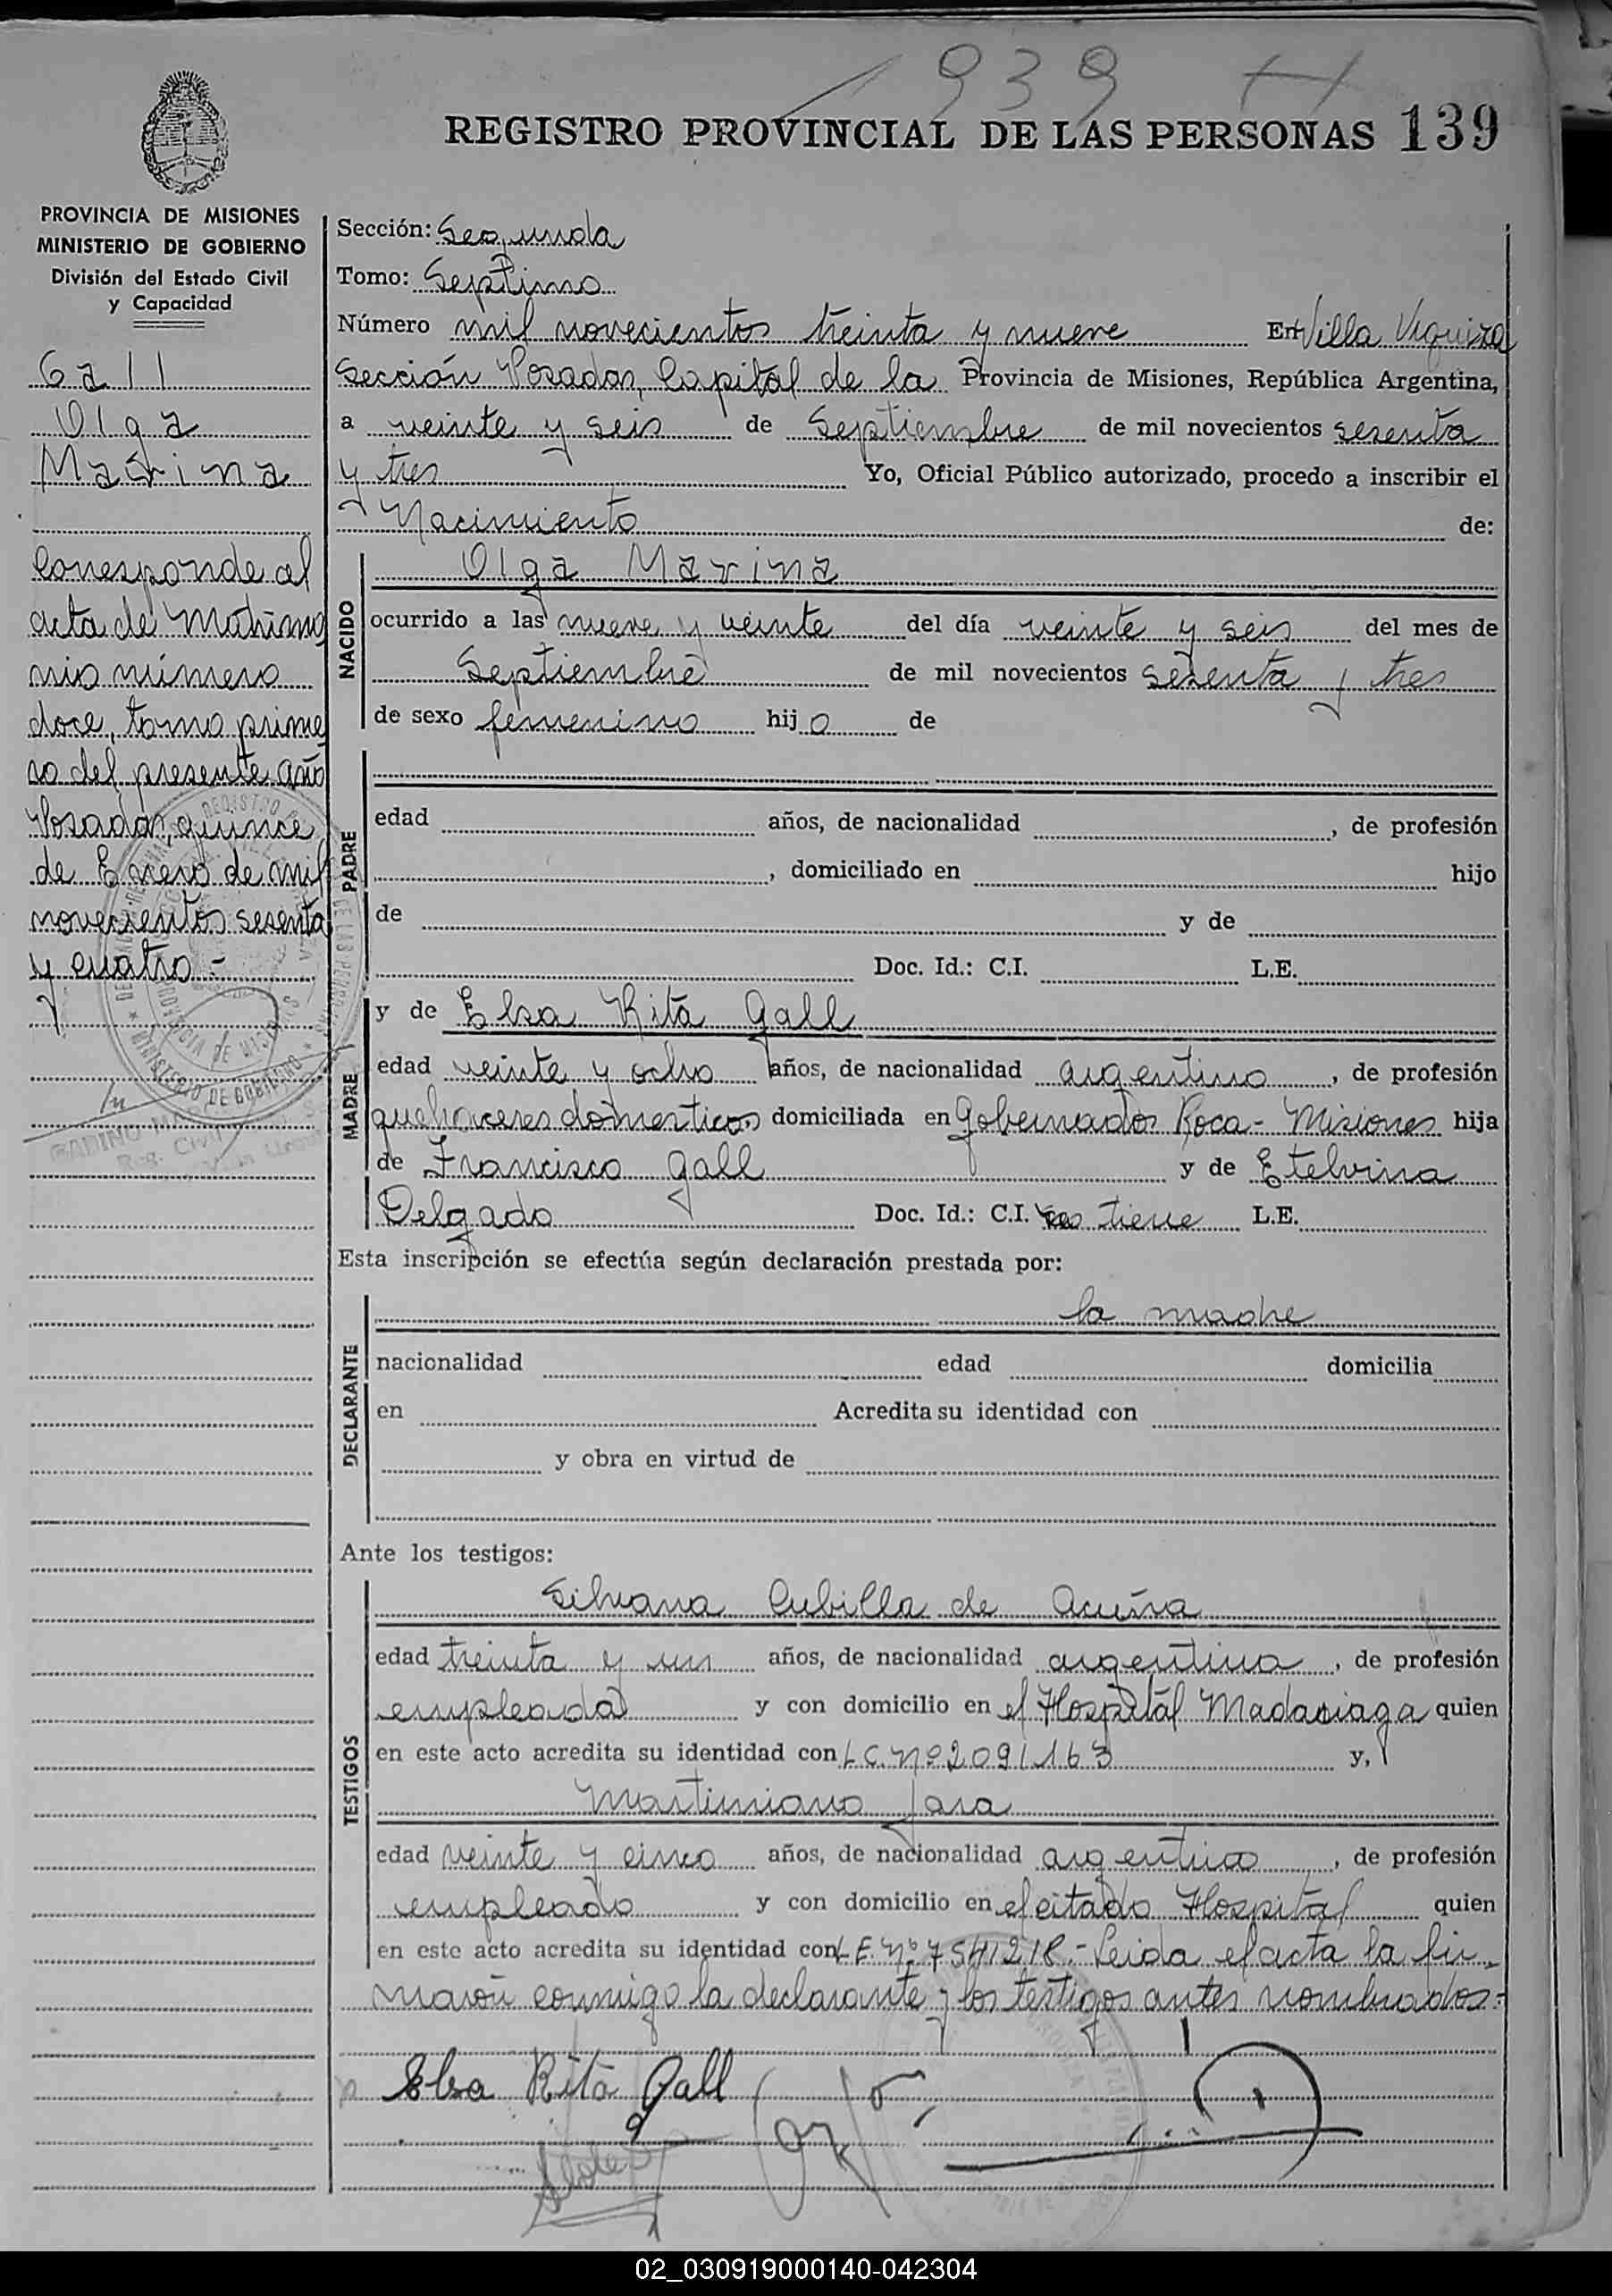 1939
REGISTRO PROVINCIAL DE LAS PERSONAS 139
PROVINCIA DE MISIONES
MINISTERIO DE GOBIERNO
División del Estado Civil
y Capacidad
Gall
Olga
Marina
Corresponde al
acta de Matrimo
nio número
doce, tomo prime
ro del presente año
Posadas, quince
de Enero de mil
novecientos sesenta
y cuatro.-
Sección: Segunda
Tomo: Septimo
Número mil novecientos treinta y nueve En Villa Urquiza
Sección Posadas, Capital de la Provincia de Misiones, República Argentina,
a veinte y seis de Septiembre de mil novecientos sesenta
y tres Yo, Oficial Público autorizado, procedo a inscribir el
Nacimiento de:
NACIDO
Olga Marina
ocurrido a las nueve y veinte del día veinte y seis del mes de
Septiembre de mil novecientos sesenta y tres
de sexo femenino hijo de
PADRE
edad años, de nacionalidad , de profesión
, domiciliado en hijo
de y de
Doc. Id.: C.I. L.E.
MADRE
y de Elsa Rita Gall
edad veinte y ocho años, de nacionalidad argentina, de profesión
quehaceres domesticos domiciliada en Gobernador Roca - Misiones hija
de Francisco Gall y de Etelvina
Delgado Doc. Id.: C.I. no tiene L.E.
Esta inscripción se efectúa según declaración prestada por:
DECLARANTE
la madre
nacionalidad edad domicilia
en Acredita su identidad con
y obra en virtud de
Ante los testigos:
TESTIGOS
Silvana Cubilla de Acuña
edad treinta y un años, de nacionalidad argentina, de profesión
empleada y con domicilio en el Hospital Madariaga quien
en este acto acredita su identidad con L.C. Nº 2091163 y,
Martiniano Jara
edad veinte y cinco años, de nacionalidad argentino, de profesión
empleado y con domicilio en el citado Hospital quien
en este acto acredita su identidad con L.E. Nº 7541218.- Leida el acta la fir-
maron conmigo la declarante y los testigos antes nombrados.-
Elsa Rita Gall
02_030919000140-042304